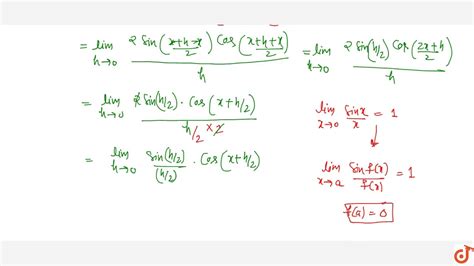 = lim h→0 2 Sin((x+h-x)/2) Cos((x+h+x)/2) / h = lim x→0 2 Sin(h/2) Cos((2x+h)/2) / h
= lim h→0 2 Sin(h/2) · Cos(x+h/2) / (h/2 × 2)
lim x→0 Sinx/x = 1
= lim h→0 Sin(h/2)/(h/2) · Cos(x+h/2)
lim x→a Sin f(x)/f(x) = 1
f(a) = 0